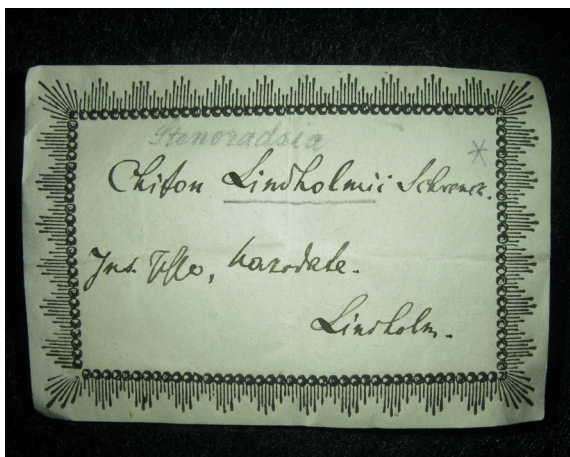 Stenoradsia
*
Chiton Lindholmii Schrenck.
Ins. Jesso, Hakodate.
Lindholm.